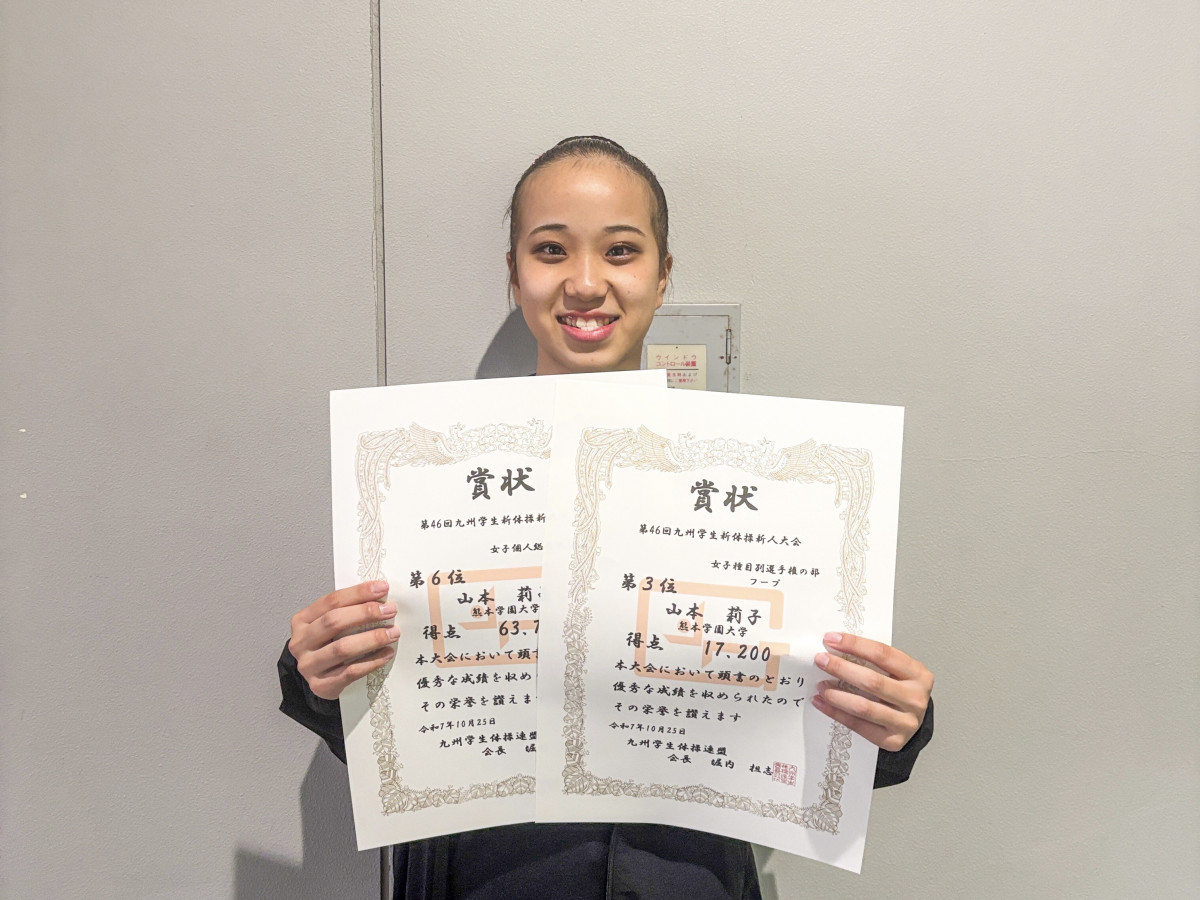 ウインドウ
コントロール装置
賞状
第46回九州学生新体操新
女子個人総
第6位
山本 莉子
熊本学園大学
得点 63.7
本大会において頭書
優秀な成績を収め
その栄誉を讃えま
令和7年10月25日
九州学生体操連盟
会長 堀
賞状
第46回九州学生新体操新人大会
女子種目別選手権の部
フープ
第3位
山本 莉子
熊本学園大学
得点 17.200
本大会において頭書のとおり
優秀な成績を収められたので
その栄誉を讃えます
令和7年10月25日
九州学生体操連盟
会長 堀内 担志